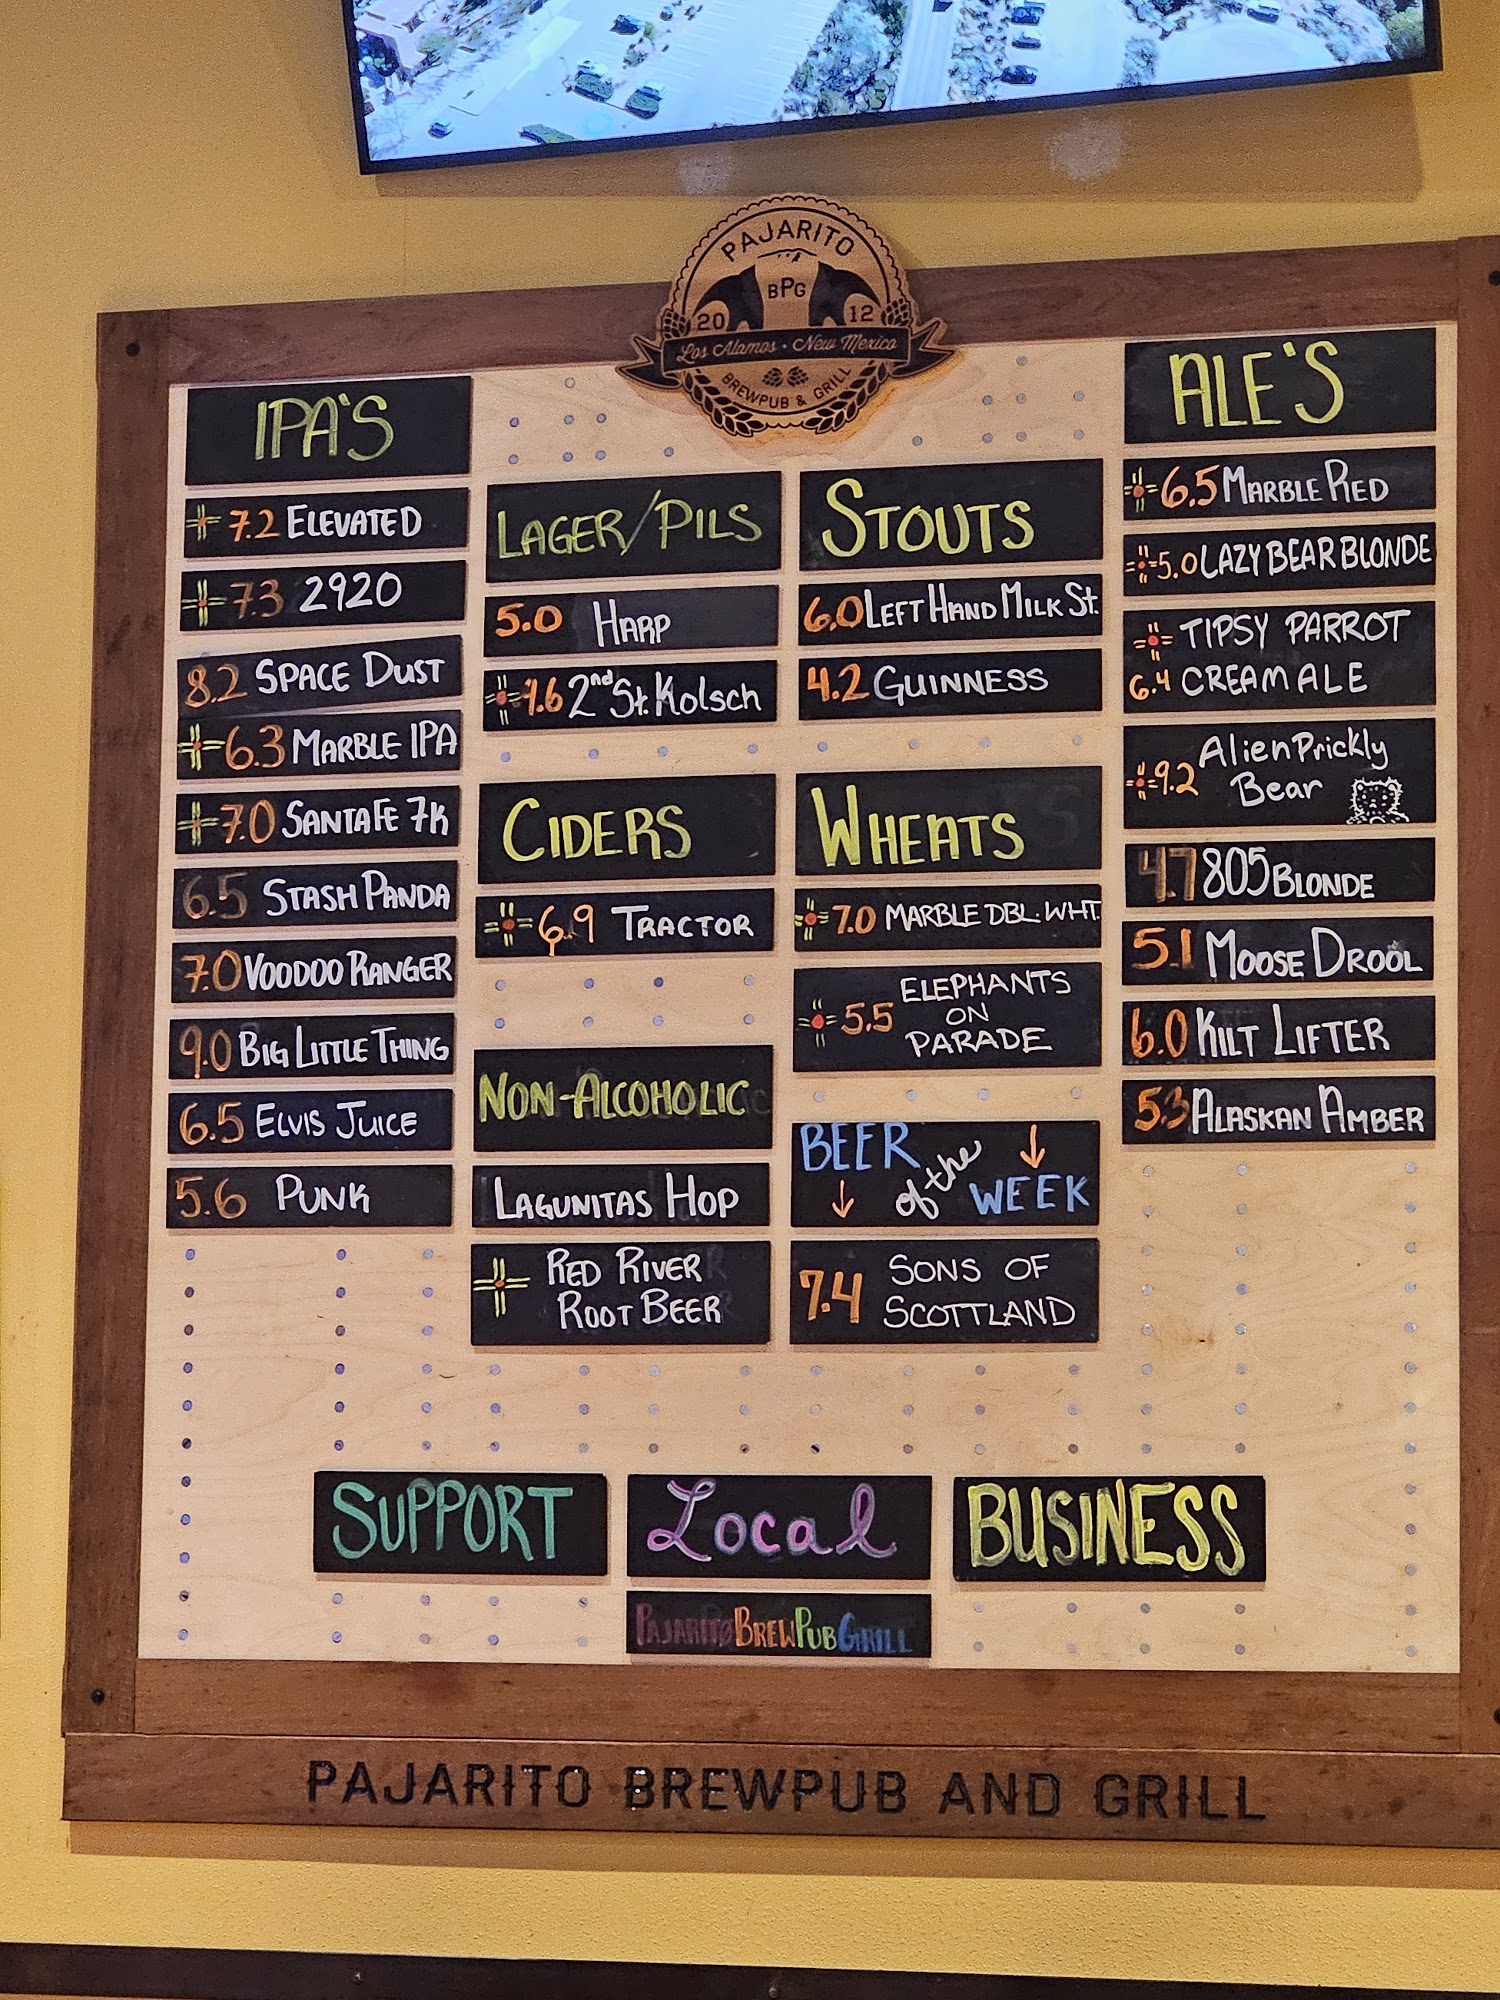 PAJARITO
BPG
20 12
Los Alamos · New Mexico
BREWPUB & GRILL
IPA'S
7.2 ELEVATED
7.3 2920
8.2 SPACE DUST
6.3 MARBLE IPA
7.0 SANTA FE 7K
6.5 STASH PANDA
7.0 VOODOO RANGER
9.0 BIG LITTLE THING
6.5 ELVIS JUICE
5.6 PUNK
LAGER/PILS
5.0 HARP
4.6 2nd St. Kolsch
CIDERS
6.9 TRACTOR
NON-ALCOHOLIC
LAGUNITAS HOP
RED RIVER
ROOT BEER
STOUTS
6.0 LEFT HAND MILK St.
4.2 GUINNESS
WHEATS
7.0 MARBLE DBL. WHT.
5.5 ELEPHANTS
ON
PARADE
BEER of the WEEK
7.4 SONS OF
SCOTTLAND
ALE'S
6.5 MARBLE RED
5.0 LAZY BEAR BLONDE
TIPSY PARROT
6.4 CREAM ALE
9.2 Alien Prickly
Bear
4.7 805 BLONDE
5.1 MOOSE DROOL
6.0 KILT LIFTER
5.3 ALASKAN AMBER
SUPPORT Local BUSINESS
PAJARITO BREWPUB GRILL
PAJARITO BREWPUB AND GRILL